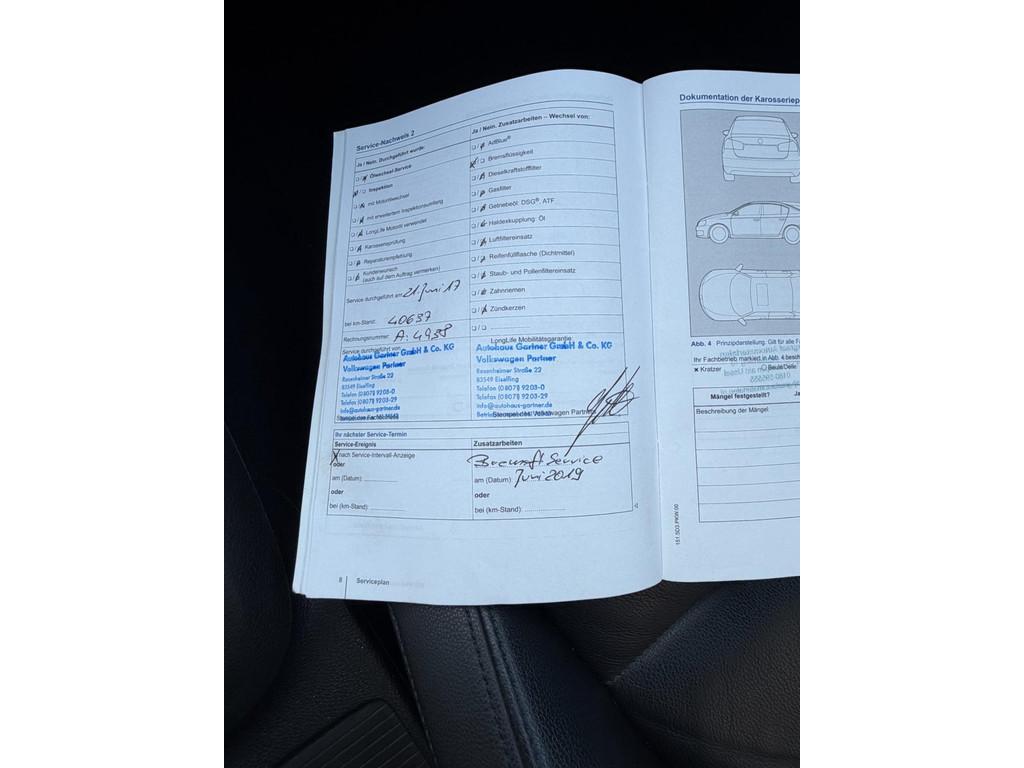 Service-Nachweis 2
Ja / Nein. Durchgeführt wurde:
Ölwechsel-Service
Inspektion
mit Motorölwechsel
mit erweitertem Inspektionsumfang
LongLife Motoröl verwendet
Karosserieprüfung
Reparaturempfehlung
Kundenwunsch
(auch auf dem Auftrag vermerken)
Service durchgeführt am: 21. Juni 17
bei km-Stand: 40637
Rechnungsnummer: A. 4938
Service durchgeführt von:
Autohaus Gartner GmbH & Co. KG
Volkswagen Partner
Rosenheimer Straße 22
83549 Eiselfing
Telefon (08071) 9203-0
Telefax (08071) 9203-29
info@autohaus-gartner.de
Ja / Nein. Zusatzarbeiten – Wechsel von:
AdBlue®
Bremsflüssigkeit
Dieselkraftstofffilter
Gasfilter
Getriebeöl: DSG®, ATF
Haldexkupplung: Öl
Luftfiltereinsatz
Reifenfüllflasche (Dichtmittel)
Staub- und Pollenfiltereinsatz
Zahnriemen
Zündkerzen
LongLife Mobilitätsgarantie
Autohaus Gartner GmbH & Co. KG
Volkswagen Partner
Rosenheimer Straße 22
83549 Eiselfing
Telefon (08071) 9203-0
Telefax (08071) 9203-29
info@autohaus-gartner.de
Stempel des Volkswagen Partners
Ihr nächster Service-Termin
Service-Ereignis
X nach Service-Intervall-Anzeige
oder
am (Datum):
oder
bei (km-Stand):
Zusatzarbeiten
Service
am (Datum): Juni 2019
oder
bei (km-Stand):
8 Serviceplan
Dokumentation der Karosseriep
Abb. 4 Prinzipdarstellung. Gilt für alle F
Ihr Fachbetrieb markiert in Abb. 4 besch
× Kratzer
O Beule/Delle
Mängel festgestellt? Ja
Beschreibung der Mängel
151.5D3.PKW.00